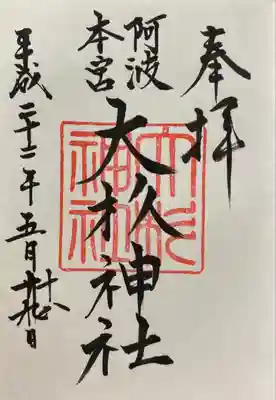 奉拝
阿波
本宮
大杉神社
大杉
神社
平成二十二年五月 日